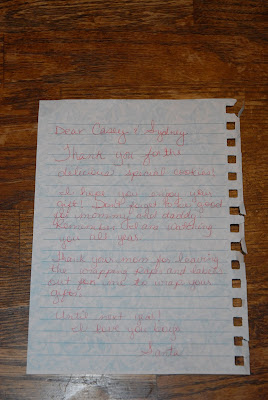 Dear Casey & Sydney,
Thank you for the
delicious, special cookies!
I hope you enjoy your
gifts. Don't forget to be good
for mommy and daddy.
Remember I am watching
you all year.
Thank your mom for leaving
the wrapping paper and
out for me to wrap your
gifts.
Until next year!
I love you guys
Santa